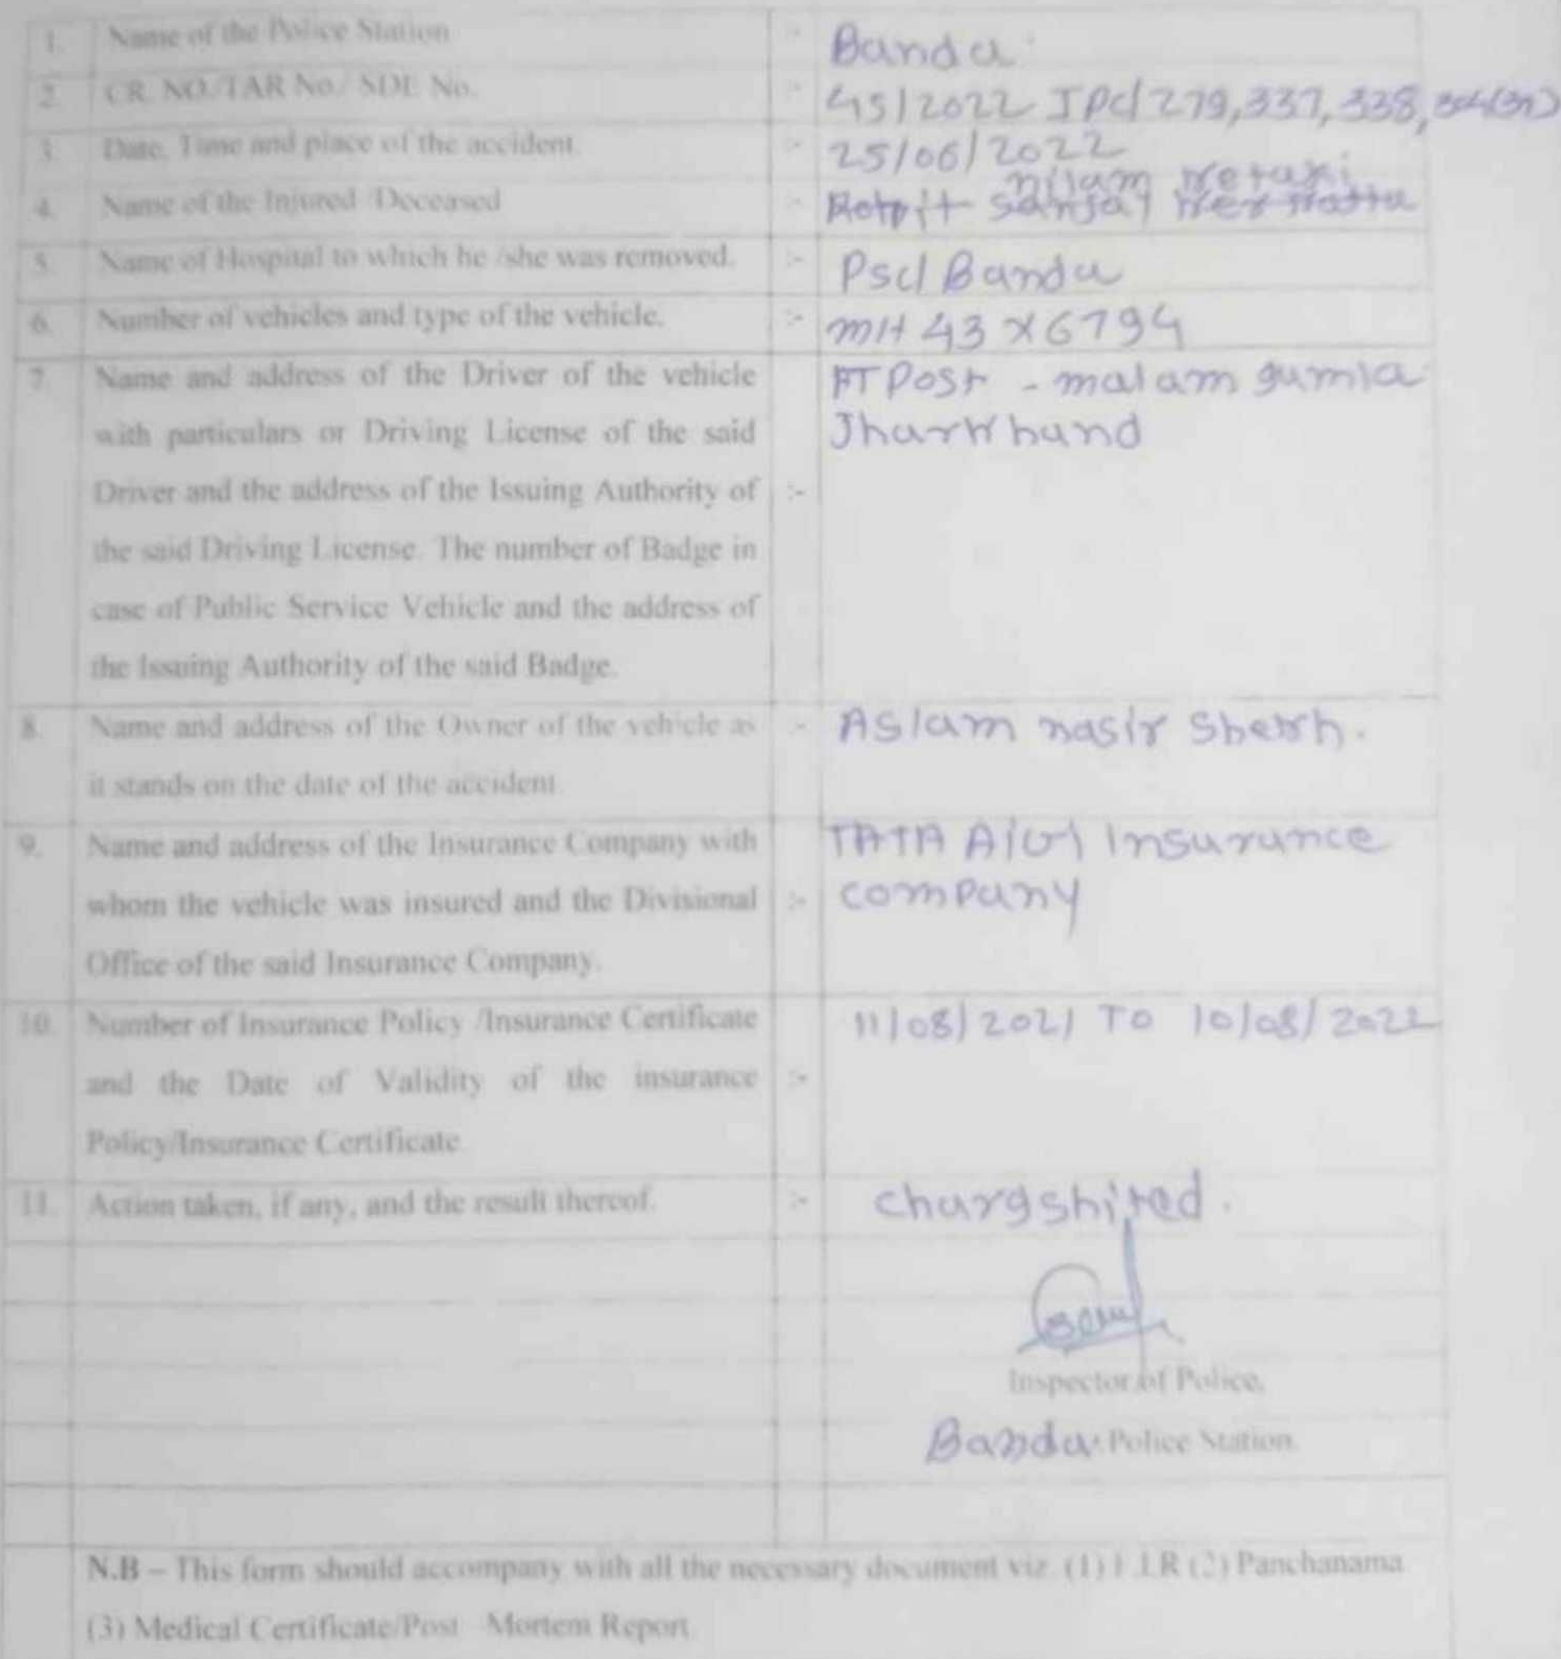 1. Name of the Police Station :- Banda
2. CR. NO./TAR No./ SDE No. :- 45/2022 IPC/ 279,337, 338, 304(अ)
3. Date, Time and place of the accident. :- 25/06/2022
nilam
4. Name of the Injured /Deceased :- sanjay
5. Name of Hospital to which he /she was removed. :- Banda
6. Number of vehicles and type of the vehicle. :- MH 43 X6794
7. Name and address of the Driver of the vehicle AT Post - malam gumla
with particulars or Driving License of the said Jharkhand
Driver and the address of the Issuing Authority of :-
the said Driving License. The number of Badge in
case of Public Service Vehicle and the address of
the Issuing Authority of the said Badge.
8. Name and address of the Owner of the vehicle as :- Aslam nasir Sheikh.
it stands on the date of the accident.
9. Name and address of the Insurance Company with TATA AIG Insurance
whom the vehicle was insured and the Divisional :- company
Office of the said Insurance Company.
10. Number of Insurance Policy /Insurance Certificate 11/08/2021 TO 10/08/2022
and the Date of Validity of the insurance :-
Policy/Insurance Certificate
11. Action taken, if any, and the result thereof. :- chargshited.
Inspector of Police,
Banda Police Station.
N.B – This form should accompany with all the necessary document viz. (1) F.I.R (2) Panchanama
(3) Medical Certificate/Post Mortem Report.